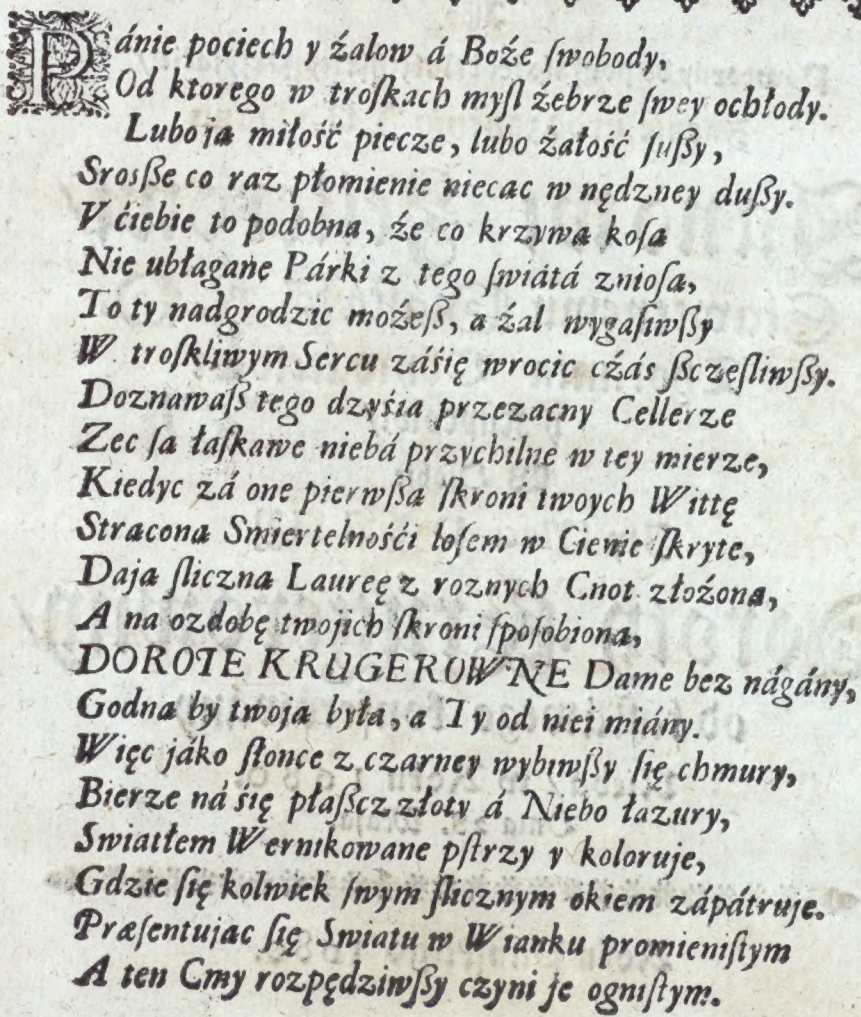 Pánie pociech y źalow á Boźe ſwobody,
Od ktorego w troſkach myſl źebrze ſwey ochłody.
Lubo ja miłość piecze, lubo źałość ſuſßy,
Srosſße co raz płomienie niecac w nędzney duſßy.
V ćiebie to podobna, źe co krzywa koſa
Nie ubłagane Párki z tego ſwiátá znioſa,
To ty nadgrodzic moźeſß, a źal wygaſiwſßy
W troſkliwym Sercu záśię wrocic cźás ſßczeſliwſßy.
Doznawaſß tego dzyśia przezacny Cellerze
Zec ſa łaſkawe niebá przychilne w tey mierze,
Kiedyc zá one pierwſßa ſkroni twoych Wittę
Stracona Smiertelnośći loſem w Cienie ſkryte,
Daja ſliczna Laureę z roznych Cnot złoźona,
A na ozdobę twojich ſkroni ſpoſobiona,
DOROTE KRUGEROWNE Dame bez nágány,
Godna by twoja była, a Ty od niei miány.
Więc jáko ſłonce z czarney wybiwſßy ſię chmury,
Bierze ná śię płaſßcz złoty á Niebo łazury,
Swiatłem Wernikowane pſtrzy y koloruje,
Gdzie ſię kolwiek ſwym ſlicznym okiem zápátruje.
Præſentujac ſię Swiatu w Wianku promieniſtym
A ten Cmy rozpędziwſßy czyni je ogniſtym.